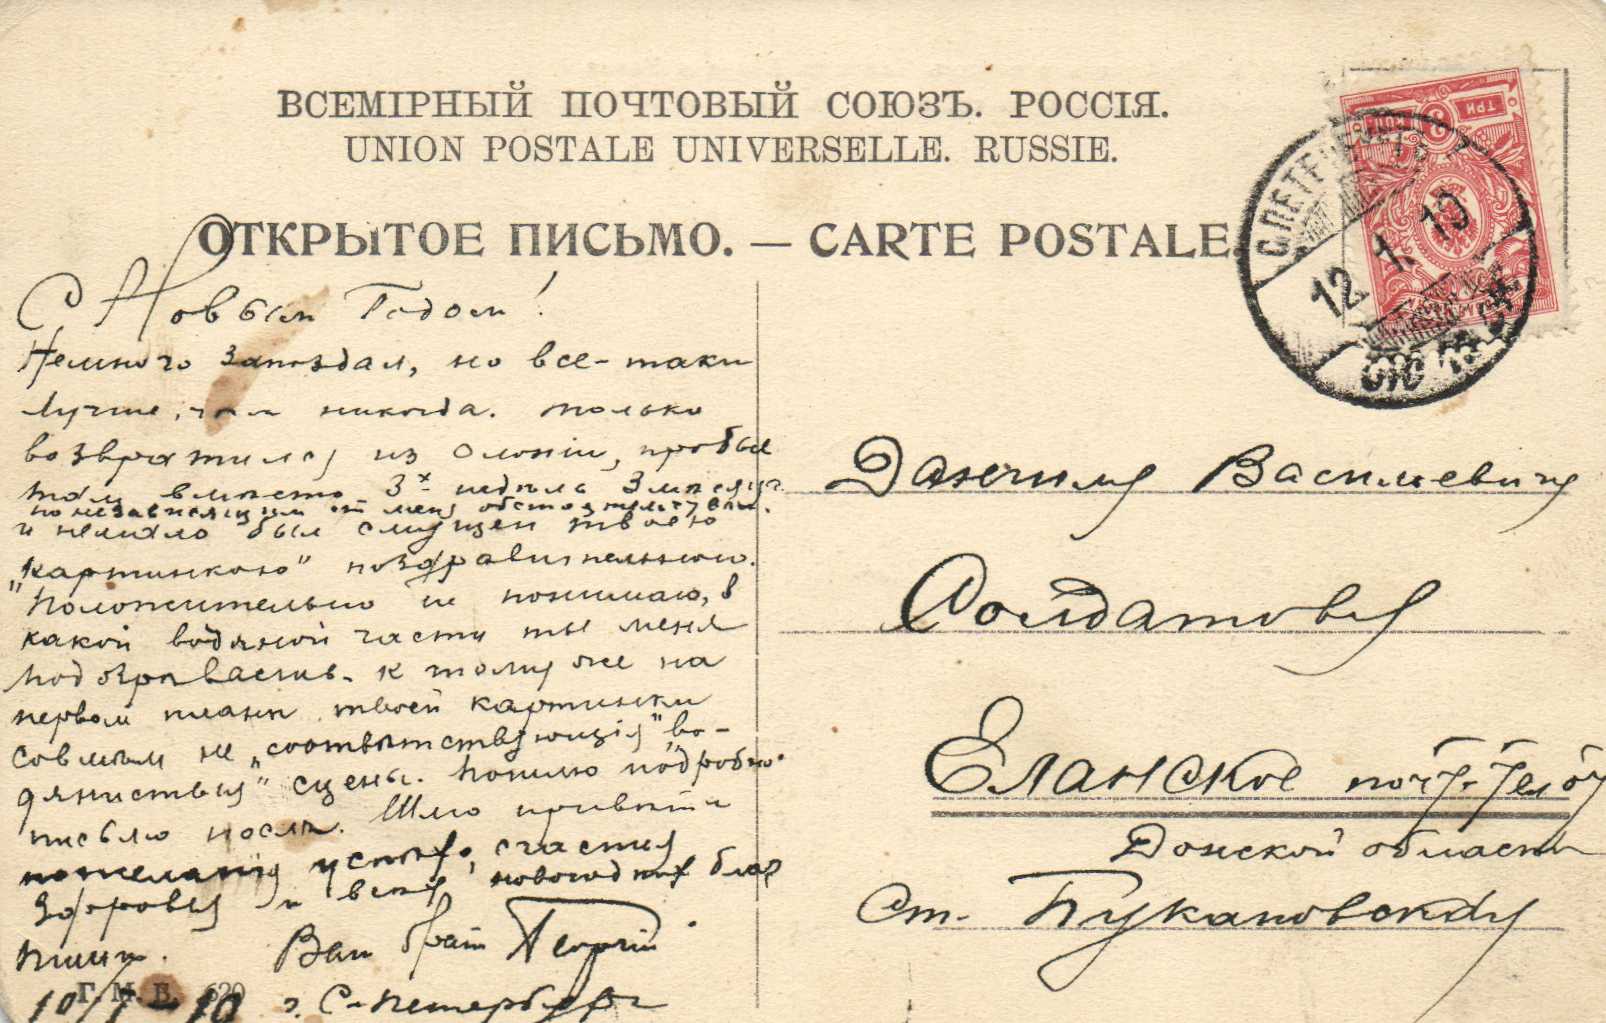 ВСЕМІРНЫЙ ПОЧТОВЫЙ СОЮЗЪ. РОССІЯ.
UNION POSTALE UNIVERSELLE. RUSSIE.
ОТКРЫТОЕ ПИСЬМО. — CARTE POSTALE.
С Новым Годом!
Немного запоздал, но все-таки
лучше, чем никогда. Только
возвратился из Олоніи, пробыв
там вместо 3х недель 3 месяца
по независящим от меня обстоятельствам.
и немало был смущен твоею
„картинкою" поздравительною.
Положительно не понимаю, в
какой водяной части ты меня
подозреваешь. к тому же на
первом плане твоей картинки
совсем не „соответствующія" „во-
дянистыя" сцены. Пошлю подробное
письмо после. Шлю привет и
пожеланія успехов, счастия
здоровья и всех новогодних благ
Пиши. Ваш брат Георгій
10/I – 10 г. С-Петербург
Г. М. Б. 620
С.ПЕТЕРБУРГЪ
12.1.10
три
3
Данчилу Васильевичу
Солдатову
Еланское почт.-тел. от
Донской области
Ст. Букановскую